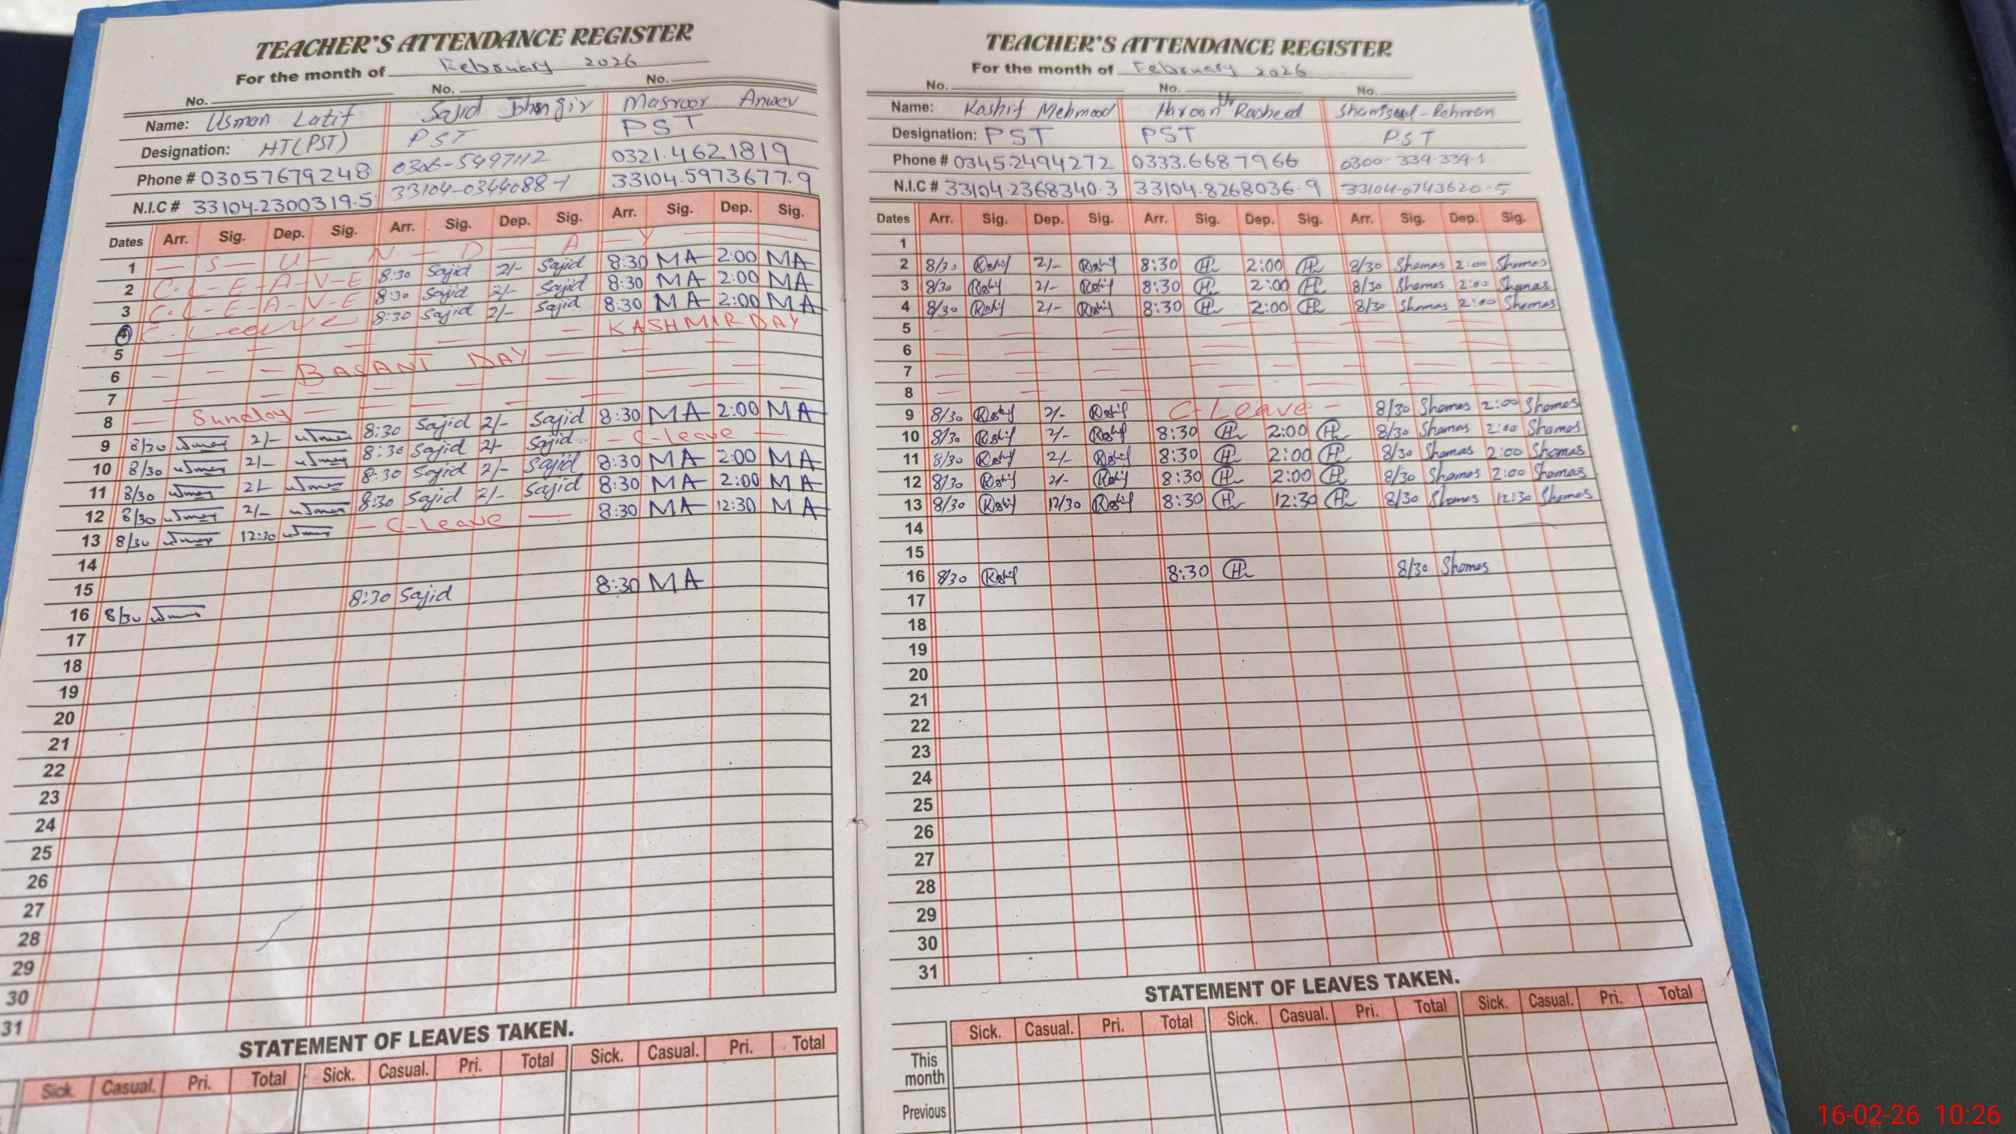 TEACHER'S ATTENDANCE REGISTER
For the month of February 2026
No. No. No.
Name: Usman Latif Sajid Jhangir Masroor Anwer
Designation: HT(PST) PST PST
Phone # 03057679248 0306-5497112 0321.4621819
N.I.C # 33104-2300319-5 33104-0344088-1 33104.5973677.9
Dates Arr. Sig. Dep. Sig. Arr. Sig. Dep. Sig. Arr. Sig. Dep. Sig.
1 — S — U — N — D — A — Y —
2 C-L-E-A-V-E 8:30 Sajid 2/- Sajid 8:30 MA 2:00 MA
3 C-L-E-A-V-E 8:30 Sajid 2/- Sajid 8:30 MA 2:00 MA
4 C-Leave 8:30 Sajid 2/- Sajid 8:30 MA 2:00 MA
5 — — — — — KASHMIR DAY
6 — — — BASANT DAY — — —
7
8 — Sunday —
9 8/30 2/- 8:30 Sajid 2/- Sajid 8:30 MA 2:00 MA
10 8/30 2/- 8:30 Sajid 2/- Sajid — C-leave —
11 8/30 2/- 8:30 Sajid 2/- Sajid 8:30 MA 2:00 MA
12 8/30 2/- 8:30 Sajid 2/- Sajid 8:30 MA 2:00 MA
13 8/30 12:30 — C-Leave — 8:30 MA 12:30 MA
14
15
16 8/30 8:30 Sajid 8:30 MA
17
18
19
20
21
22
23
24
25
26
27
28
29
30
31
STATEMENT OF LEAVES TAKEN.
Sick. Casual. Pri. Total Sick. Casual. Pri. Total Sick. Casual. Pri. Total
TEACHER'S ATTENDANCE REGISTER
For the month of February 2026
No. No. No.
Name: Kashif Mehmood Haroon Ur Rasheed Shamsul-Rehman
Designation: PST PST PST
Phone # 0345.2494272 0333.6687966 0300-339-339-1
N.I.C # 33104.2368340.3 33104.8268036.9 33104-0743620-5
Dates Arr. Sig. Dep. Sig. Arr. Sig. Dep. Sig. Arr. Sig. Dep. Sig.
1
2 8/30 2/- 8:30 2:00 8/30 Shamas 2:00 Shamas
3 8/30 2/- 8:30 2:00 8/30 Shamas 2:00 Shamas
4 8/30 2/- 8:30 2:00 8/30 Shamas 2:00 Shamas
5
6
7
8
9 8/30 2/- C-Leave - 8/30 Shamas 2:00 Shamas
10 8/30 2/- 8:30 2:00 8/30 Shamas 2:00 Shamas
11 8/30 2/- 8:30 2:00 8/30 Shamas 2:00 Shamas
12 8/30 2/- 8:30 2:00 8/30 Shamas 2:00 Shamas
13 8/30 12/30 8:30 12:30 8/30 Shamas 12:30 Shamas
14
15
16 8/30 8:30 8/30 Shamas
17
18
19
20
21
22
23
24
25
26
27
28
29
30
31
STATEMENT OF LEAVES TAKEN.
Sick. Casual. Pri. Total Sick. Casual. Pri. Total Sick. Casual. Pri. Total
This month
Previous
16-02-26 10:26